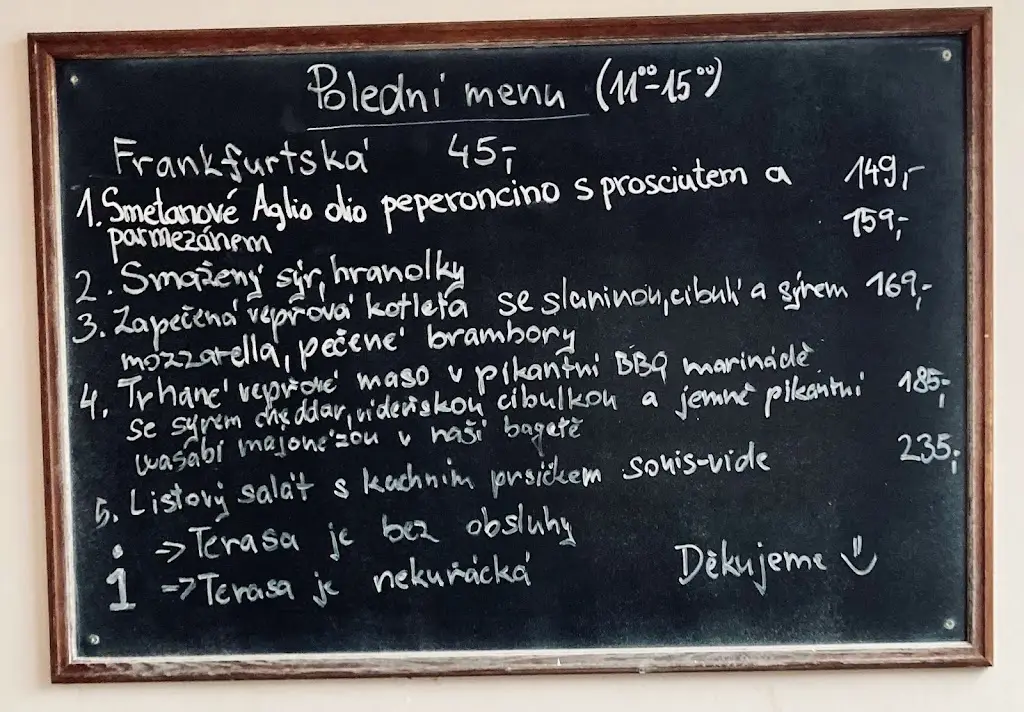 Polední menu (11⁰⁰-15⁰⁰)
Frankfurtská 45,-
1. Smetanové Aglio olio peperoncino s prosciutem a 149,-
parmezánem 159,-
2. Smažený sýr, hranolky
3. Zapečená vepřová kotleta se slaninou, cibulí a sýrem 169,-
mozzarella, pečené brambory
4. Trhané vepřové maso v pikantní BBQ marinádě
se sýrem cheddar, vídeňskou cibulkou a jemně pikantní 185,-
wasabi majonézou v naší bagetě
5. Listový salát s kachním prsíčkem souis-vide 235,-
i -> Terasa je bez obsluhy
-> Terasa je nekuřácká Děkujeme